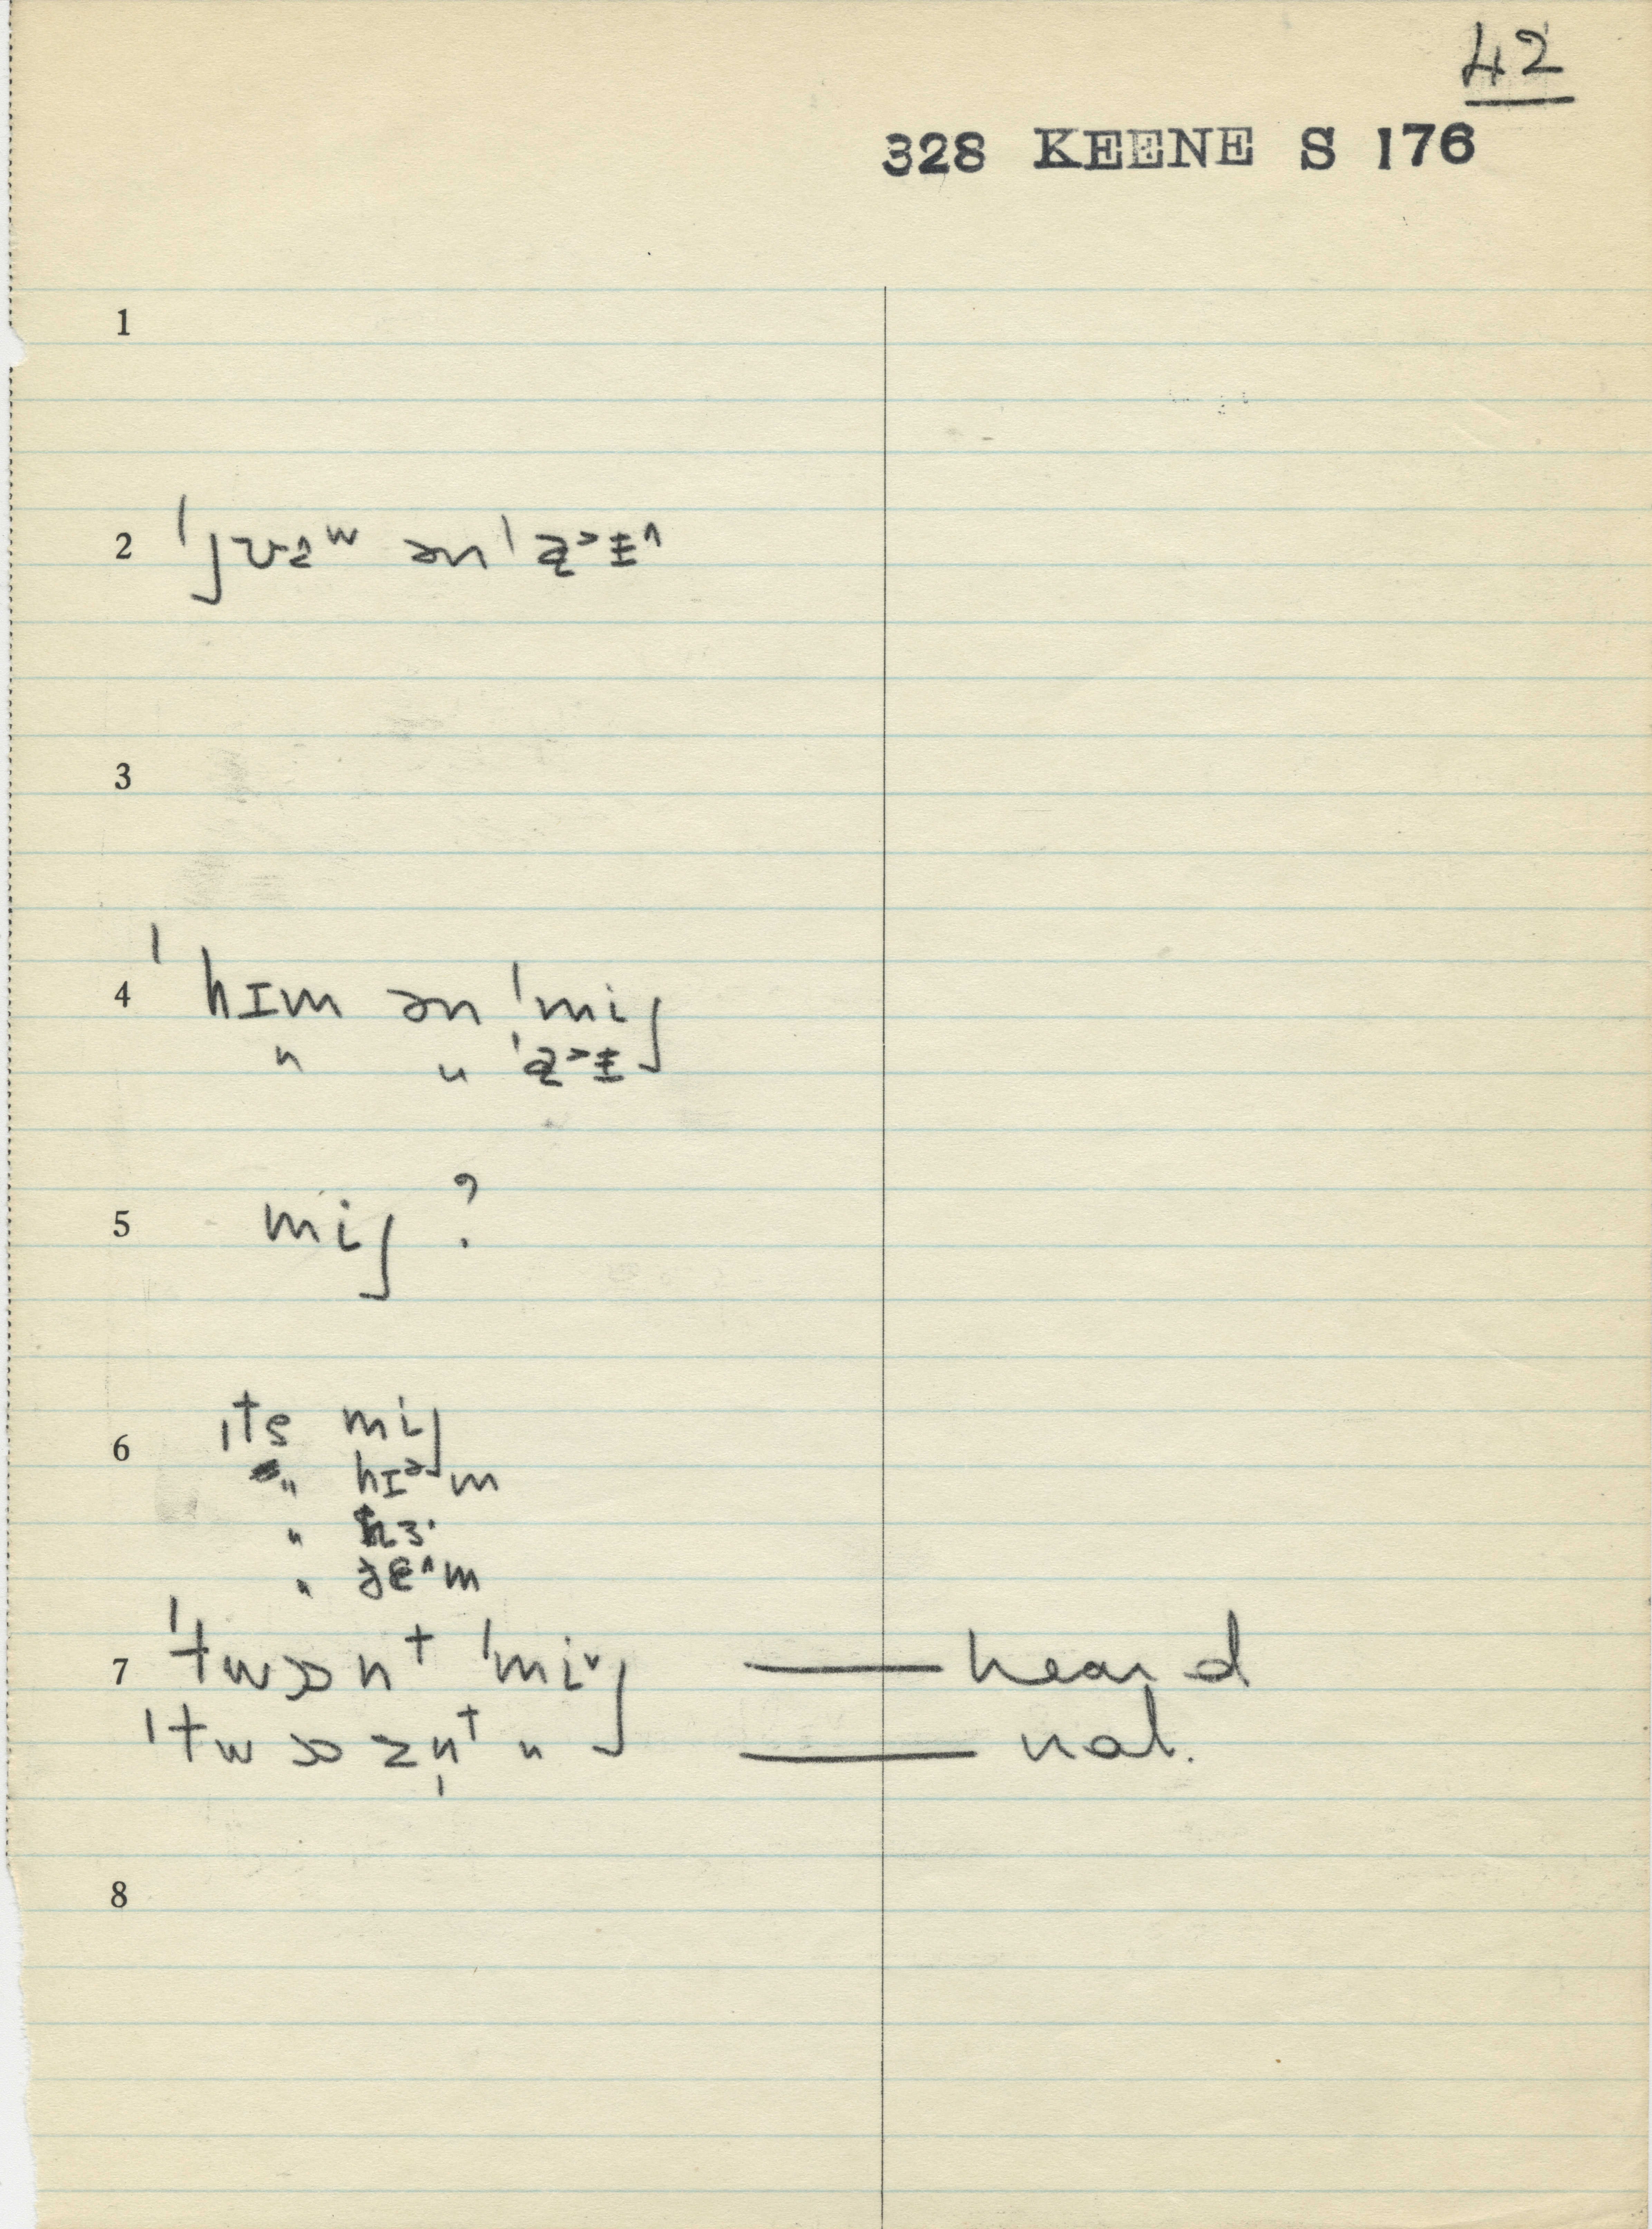 42
328 KEENE S 176
1
2 ˈjʊɨʷ ən ˈaᵊɪ^
3
4 ˈhɪm ən ˈmij
" " ˈaᵊɪ
5 mij ?
6 ɪts mij
" hɪᵊm
" hɜ·
" ðɛ^m
7 ˈtwɔnt ˈmiˇj — heard
ˈtwɔzn̩t " — nat.
8